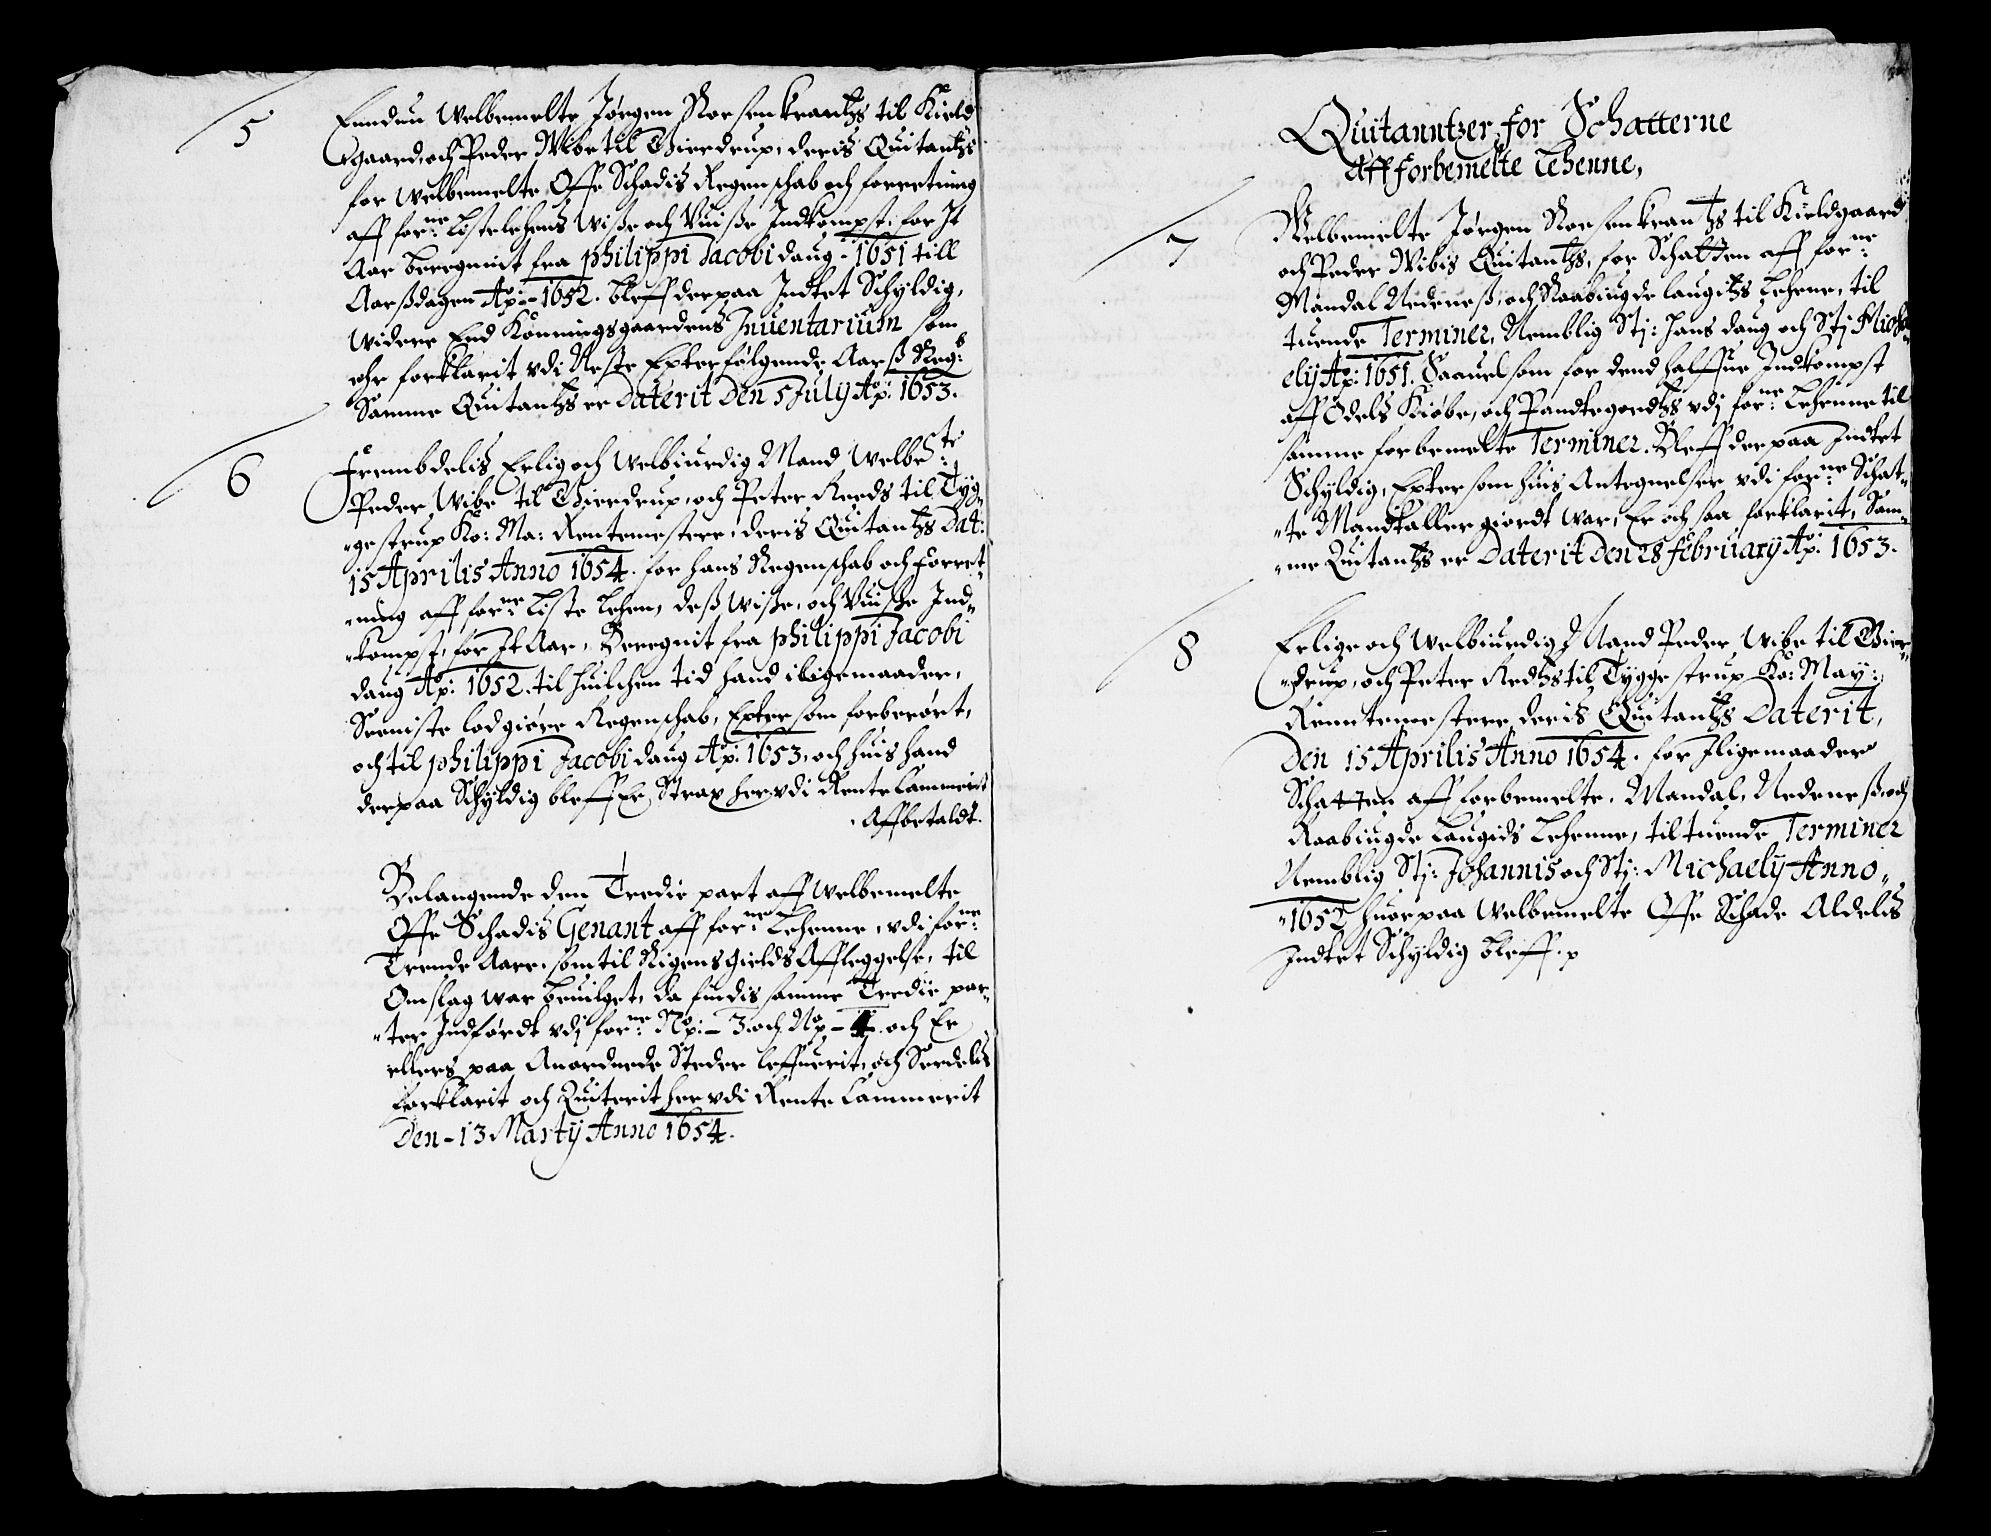 5
Enndnu Welbemelte Jørgen Rosenkrantz til Kield
gaard, och Peder Wibe til Gierdrup, deris Quitantzs
for Welbemelte Offe Schadis Regenschab och forretning
aff forne: Listelehens Wiße och Vuiße Indkompst, for It
Aar beregnnit fra philippi Jacobi daug - 1651 till
Aarßdagen Ao: - 1652. bleff derpaa Indtet Schyldig,
widere End Konningsgaardens Inuentarium som
ehr forklarit vdi Neste Epterfølgende Aarß Regb:
Samme Quitantzs er Daterit Den 5 July Ao: 1653.
6
Frembdelis Erlig och Welbiurdig Mand Welbete:
Peder Wibe til Gierdrup, och Peter Reeds til Tyg„
„gestrup Ko: Ma: Rentemestere, deris Quitantzs Dat:
15 Aprilis Anno 1654. for hans Regenschab och Forret„
„ning aff forne: Liste Lehen, deß Wiße, och Vuiße Ind„
„kompst, for It Aar, Beregnit fra philippi Jacobi
daug Ao: 1652. til huilchen tid hand iligemaader,
Seeniste lod giøre Regenschab, Epter som forberørt,
och til philippi Jacobi daug Ao: 1653, och huis hand
derpaa Schyldig bleff Er Strax her vdi Rente Cammerit
Affbetaldt.
Belangende den Tredie part aff Welbemelte
Offe Schadis Genant aff forne: Lehenne, vdi forne:
Trende Aare, som til Rigens Gields Affleggelse, til
Omslag war beuilget, da findis samme Tredie par„
„ter Indførdt vdj forne: No: - 3. och No - 4. och Er
ellers paa Anordnede Steder leffuerit, och Serdelis
forklarit och Quiterit her vdi Rente Cammerit
Den - 13 Martij Anno 1654.
Quitanntzer for Schatterne
Aff forbemelte Lehenne,
7
Welbemelte Jørgen Rosenkrantzs til Kieldgaard
och Peder Wibis Quitantzs, for Schatten aff forne:
Mandal Nedeneß, och Raabiugde laugitzs Lehene, til
tuende Terminer, Nemblig Stj: Hans daug och Stj Micha„
elij Ao: 1651. Saauelsom for dend halffue Indkompst
aff Odels Kiøbe, och Pandtegoedtzs vdj forne: Lehenne til
samme forbemelte Terminer. Bleff derpaa Indtet
Schyldig, Epter som huis Antegnelser vdi forne Schat„
„te Mandtaller giordt war, Er och saa forklarit, Sam„
„me Quitantzs er Daterit Den 28 february Ao: 1653.
8
Erlige och Welbiurdig Mand Peder Wibe til Gier„
„drup, och Peter Redtzs til Tyggestrup Ko: May:
Renntemestere deris Quitantzs Daterit,
Den 15 Aprilis Anno 1654. for Iligemaader
Schatten aff forbemelte, Mandal, Nedeneß, och
Raabiugde Laugids Lehenne, til tuende Terminer
Nemblig Stj: Johannis och Stj: Michaely Anno„
„1652 huorpaa Welbemelte Offe Schade Aldelis
Indtet Schyldig bleff. p